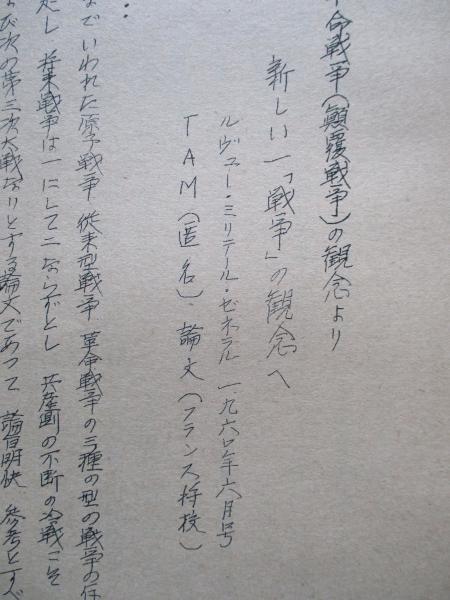 命戦争(顛覆戦争)の観念より
新しい「戦争」の観念へ
ルヴュー・ミリテール・ゼネラル 一九六〇年六月号
TAM(匿名)論文(フランス将校)
までいわれた原子戦争、従来型戦争、革命戦争の三種の型の戦争の
し 将来戦争は一にして二ならずとし 共産圏の不断の冷戦こそ
よび次の第三次大戦なりとする論文であつて 論旨明快 参考とすべ